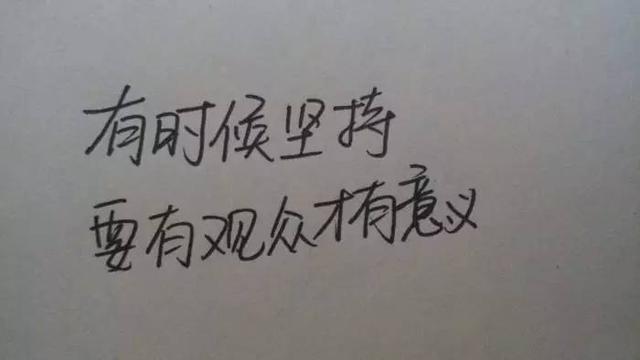 有时候坚持
要有观众才有意义